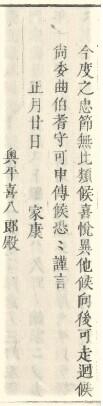 今度之忠節無比類候喜悅異他候向後可走廻候
尙委曲伯耆守可申傳候恐〻謹言
正月廿日　家康
奧平喜八郞殿